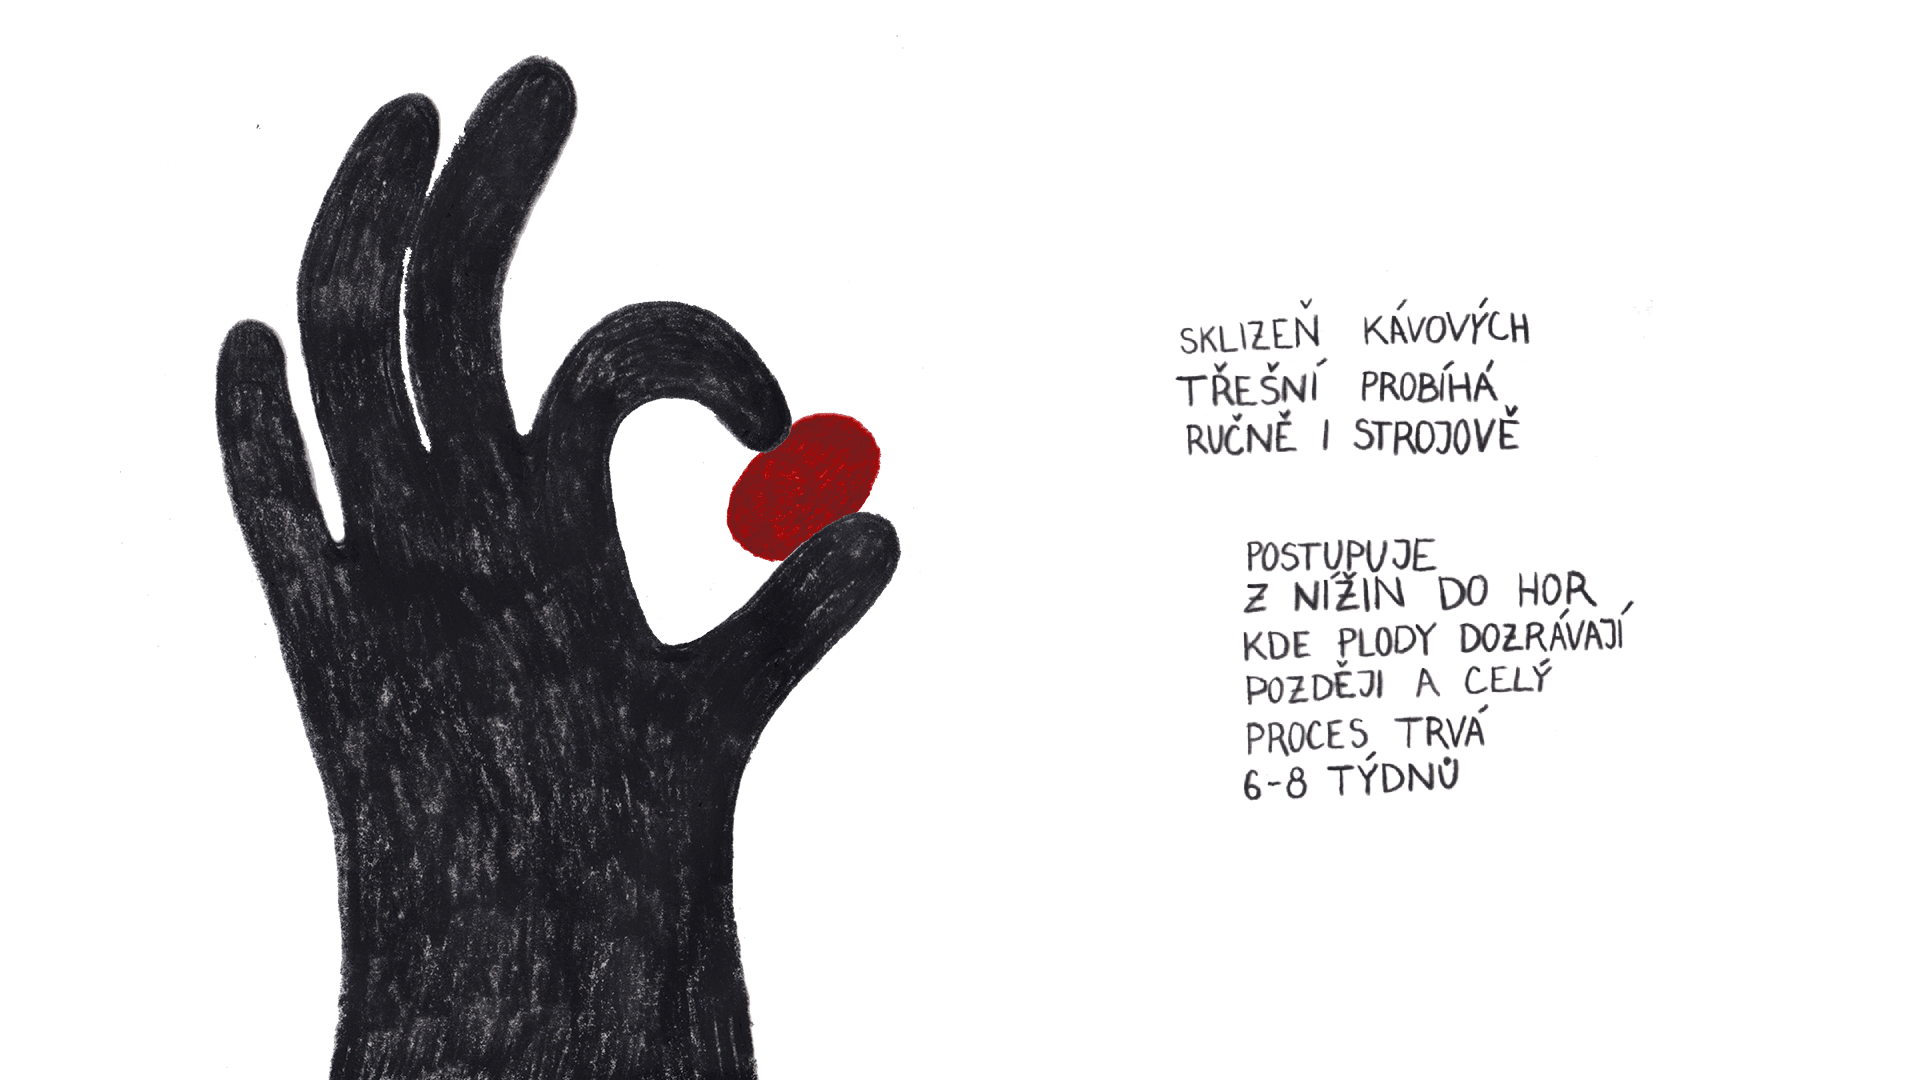 SKLIZEŇ KÁVOVÝCH
TŘEŠNÍ PROBÍHÁ
RUČNĚ I STROJOVĚ
POSTUPUJE
Z NÍŽIN DO HOR
KDE PLODY DOZRÁVAJÍ
POZDĚJI A CELÝ
PROCES TRVÁ
6-8 TÝDNŮ